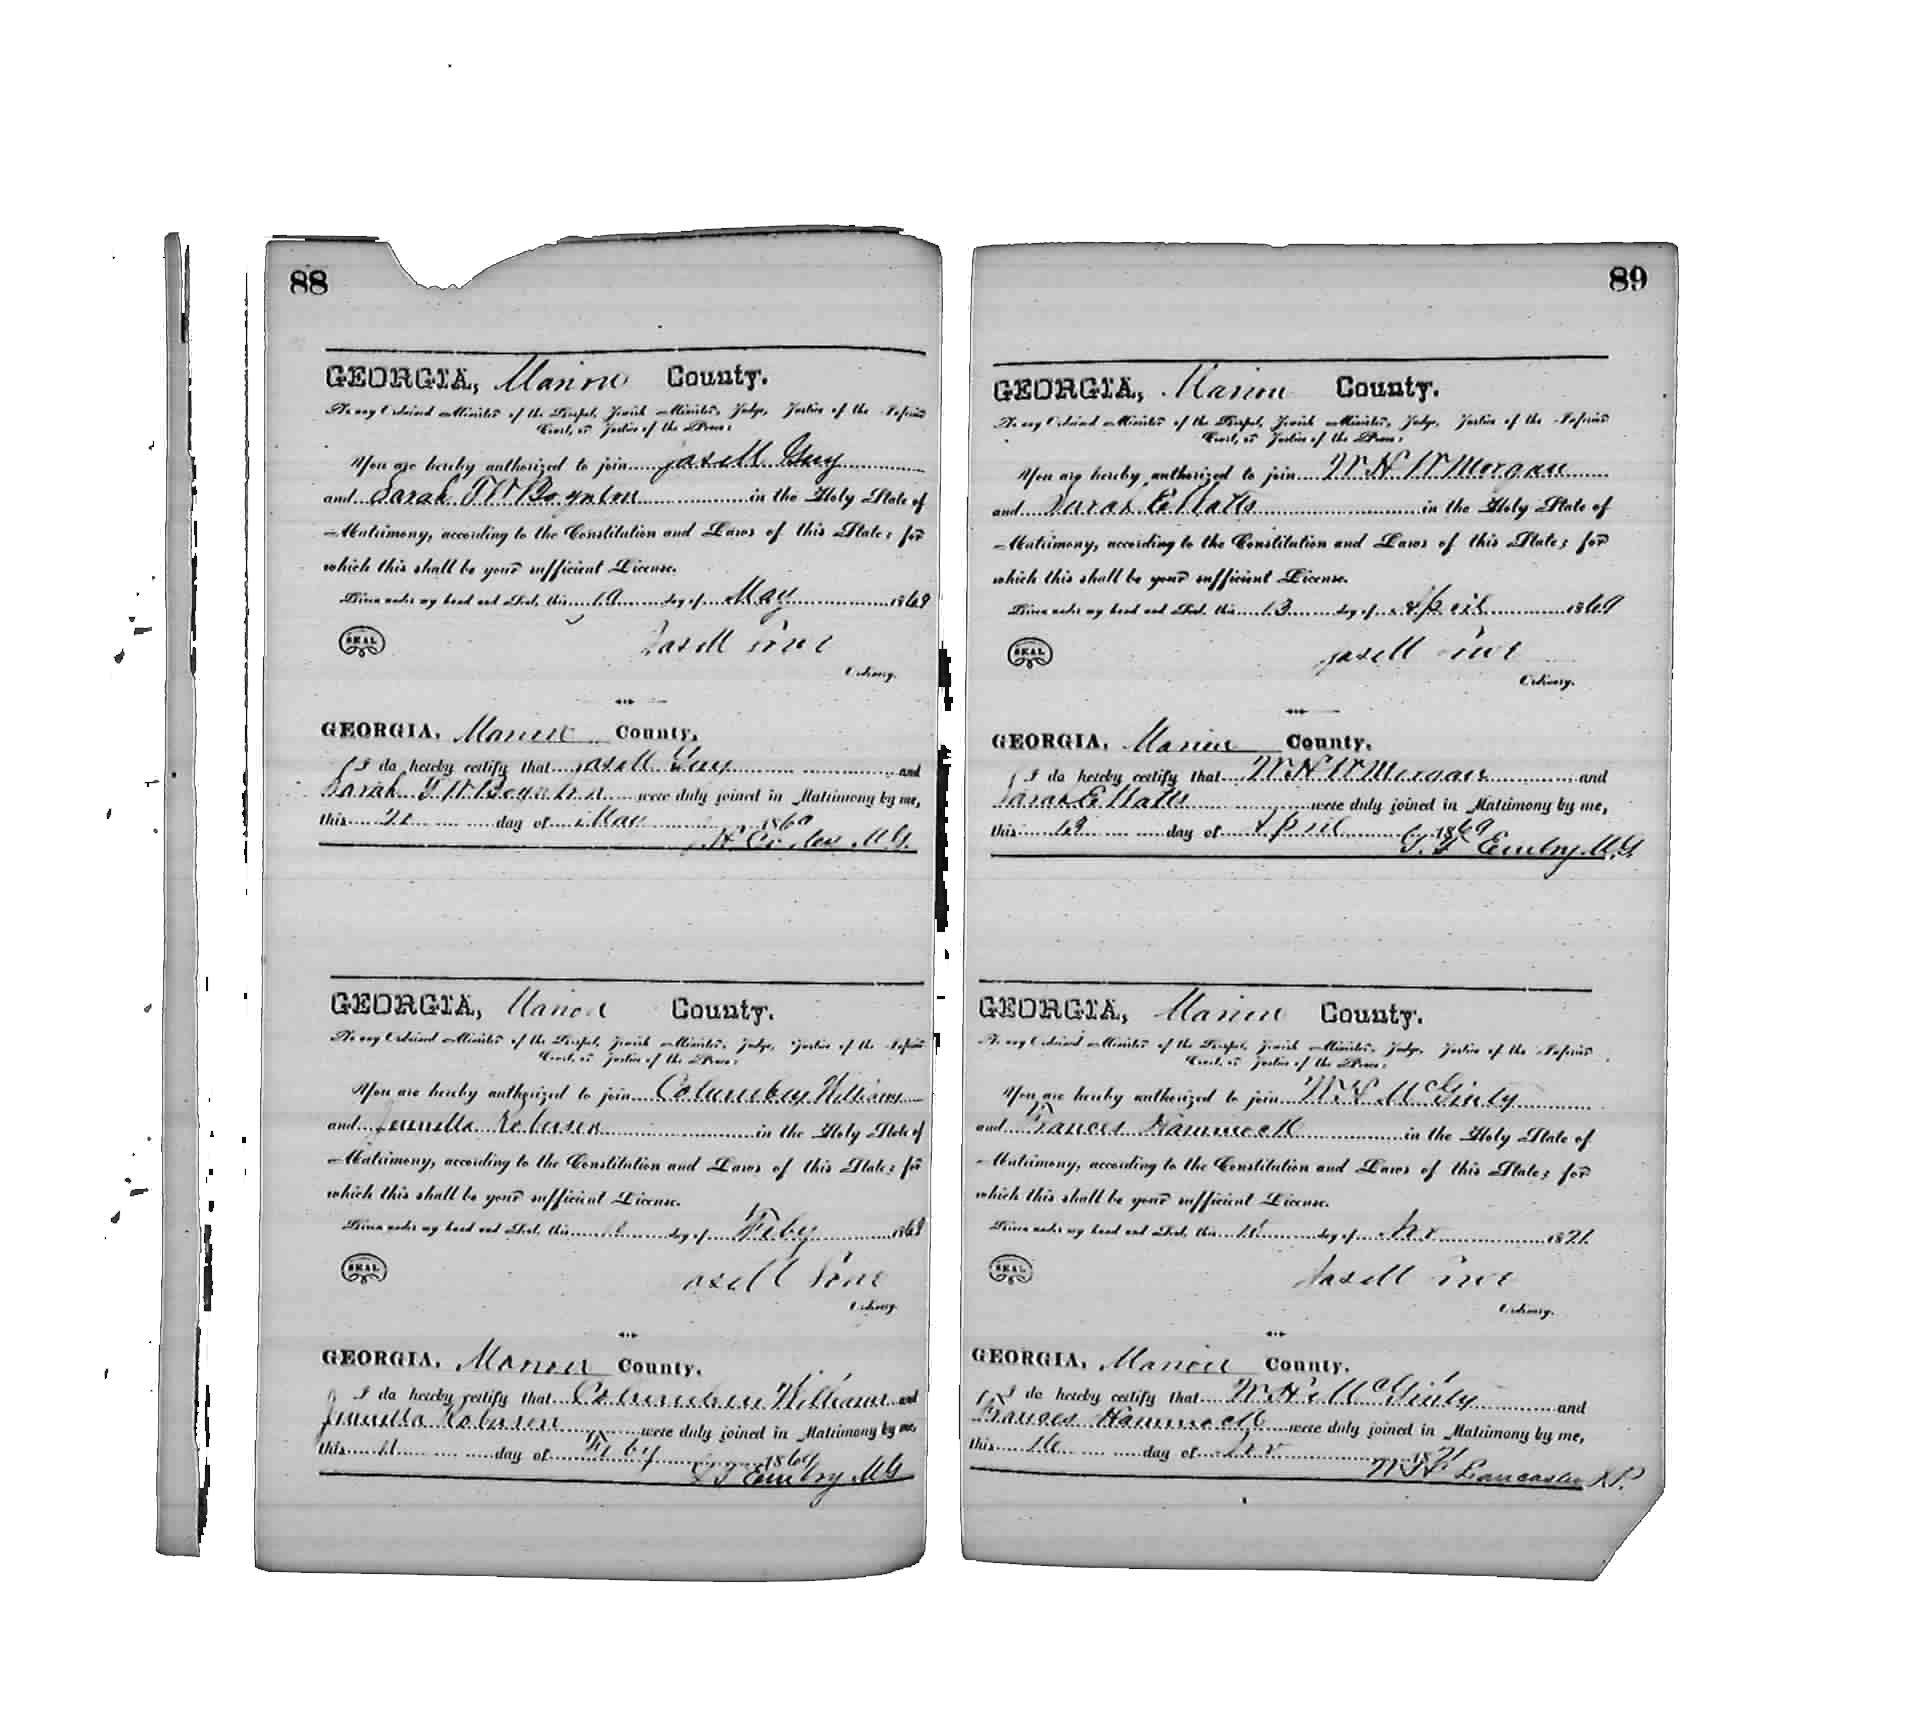 88
GEORGIA, Marion County.
To any Ordained Minister of the Gospel, Jewish Minister, Judge, Justice of the Inferior
Court, or Justice of the Peace:
You are hereby authorized to join Jas M Guy
and Sarah T W Boynton in the Holy State of
Matrimony, according to the Constitution and Laws of this State; for
which this shall be your sufficient License.
Given under my hand and Seal, this 19 day of May 1869
SEAL
Jas M
Ordinary.
GEORGIA, Marion County.
I do hereby certify that Jas M Guy and
Sarah T W Boynton were duly joined in Matrimony by me,
this day of May 186
M.G.
GEORGIA, Marion County.
To any Ordained Minister of the Gospel, Jewish Minister, Judge, Justice of the Inferior
Court, or Justice of the Peace:
You are hereby authorized to join Columbus Williams
and Roberson in the Holy State of
Matrimony, according to the Constitution and Laws of this State; for
which this shall be your sufficient License.
Given under my hand and Seal, this day of Feby 1869
SEAL
Jas M
Ordinary.
GEORGIA, Marion County.
I do hereby certify that Columbus Williams and
Roberson were duly joined in Matrimony by me,
this 11 day of Feby 1869
Embry M G
89
GEORGIA, Marion County.
To any Ordained Minister of the Gospel, Jewish Minister, Judge, Justice of the Inferior
Court, or Justice of the Peace:
You are hereby authorized to join W H W Morgan
and Sarah E Watts in the Holy State of
Matrimony, according to the Constitution and Laws of this State; for
which this shall be your sufficient License.
Given under my hand and Seal, this 13 day of April 1869
SEAL
Jas M
Ordinary.
GEORGIA, Marion County.
I do hereby certify that W H W Morgan and
Sarah E Watts were duly joined in Matrimony by me,
this 18 day of April 1869
Embry M.G.
GEORGIA, Marion County.
To any Ordained Minister of the Gospel, Jewish Minister, Judge, Justice of the Inferior
Court, or Justice of the Peace:
You are hereby authorized to join W H McGinty
and Frances Hammock in the Holy State of
Matrimony, according to the Constitution and Laws of this State; for
which this shall be your sufficient License.
Given under my hand and Seal, this day of Nov 1871
SEAL
Jas M
Ordinary.
GEORGIA, Marion County.
I do hereby certify that W H McGinty and
Frances Hammock were duly joined in Matrimony by me,
this 16 day of Nov 1871
Lancaster J.P.